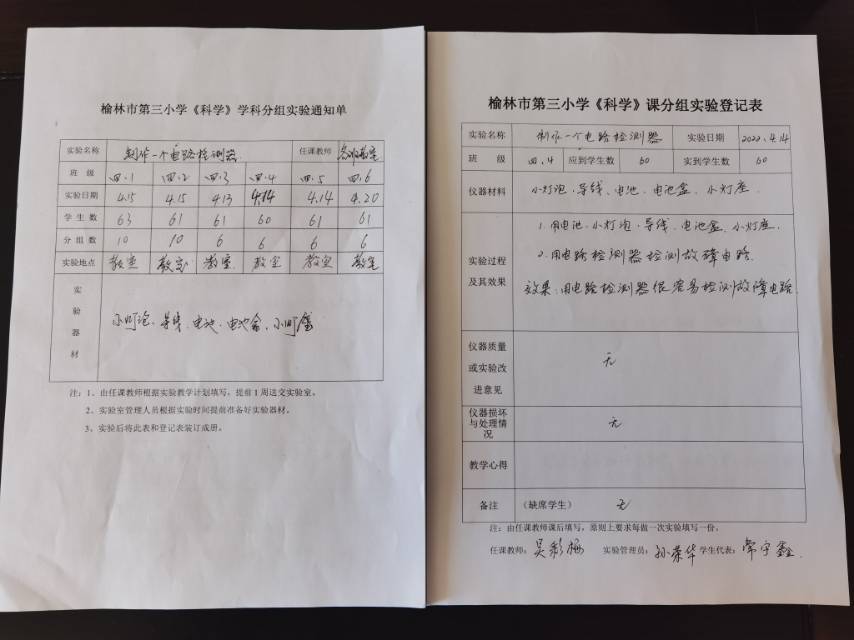 榆林市第三小学《科学》学科分组实验通知单
实验名称 制作一个电路检测器 任课教师
班 级 四.1 四.2 四.3 四.4 四.5 四.6
实验日期 4.15 4.15 4.13 4.14 4.14 4.20
学 生 数 63 61 61 60 61 61
分 组 数 10 10 6 6 6 6
实验地点 教室 教室 教室 教室 教室 教室
实验器材 小灯泡、导线、电池、电池盒、小灯座
注：1、由任课教师根据实验教学计划填写，提前1周送交实验室。
2、实验室管理人员根据实验时间提前准备好实验器材。
3、实验后将此表和登记表装订成册。
榆林市第三小学《科学》课分组实验登记表
实验名称 制作一个电路检测器 实验日期 2022.4.14
班 级 四.4 应到学生数 60 实到学生数 60
仪器材料 小灯泡、导线、电池、电池盒、小灯座.
实验过程及其效果
1.用电池、小灯泡、导线、电池盒、小灯座.
2.用电路检测器检测故障电路.
效果:用电路检测器很容易检测故障电路
仪器质量或实验改进意见 无
仪器损坏与处理情况 无
教学心得
备注 （缺席学生） 无
注：由任课教师课后填写，原则上要求每做一次实验填写一份。
任课教师：吴彩梅 实验管理员：孙荣华 学生代表：常宇鑫